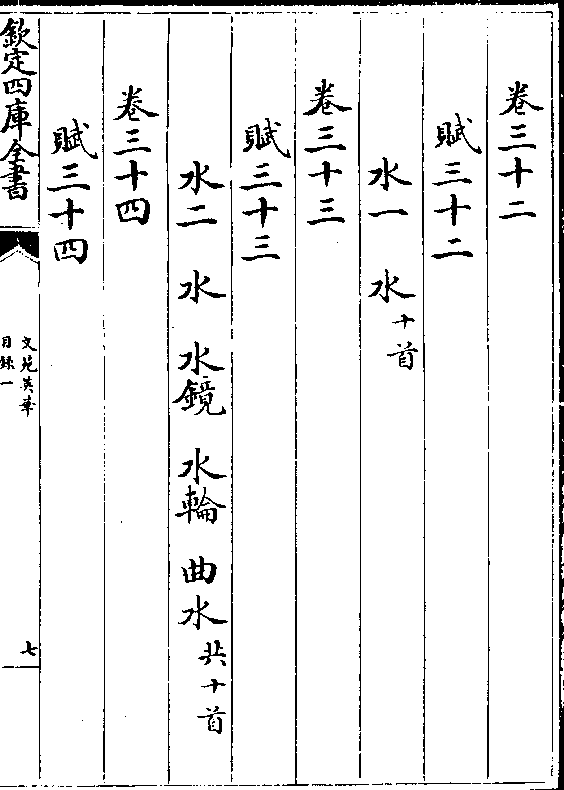 卷三十二
賦三十二
水一 水十首
卷三十三
賦三十三
水二 水 水鏡 水輪 曲水共十首
卷三十四
賦三十四
欽定四庫全書
文苑英華
目録一
七